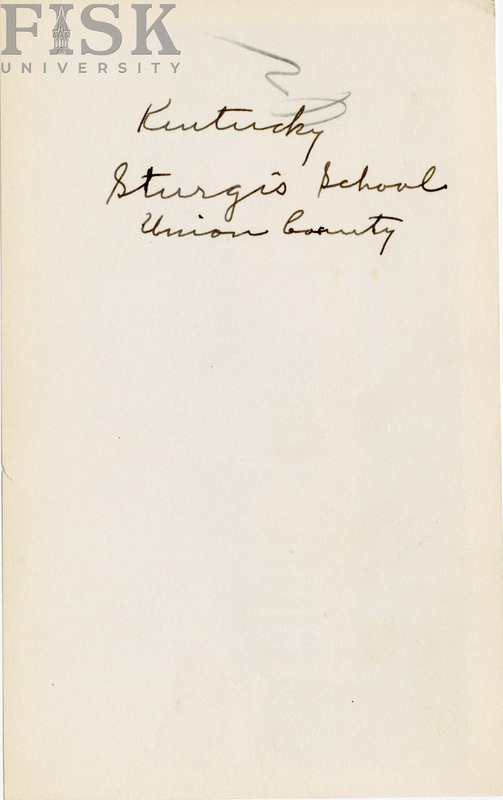 FISK
UNIVERSITY
Kentucky
Sturgis School
Union County